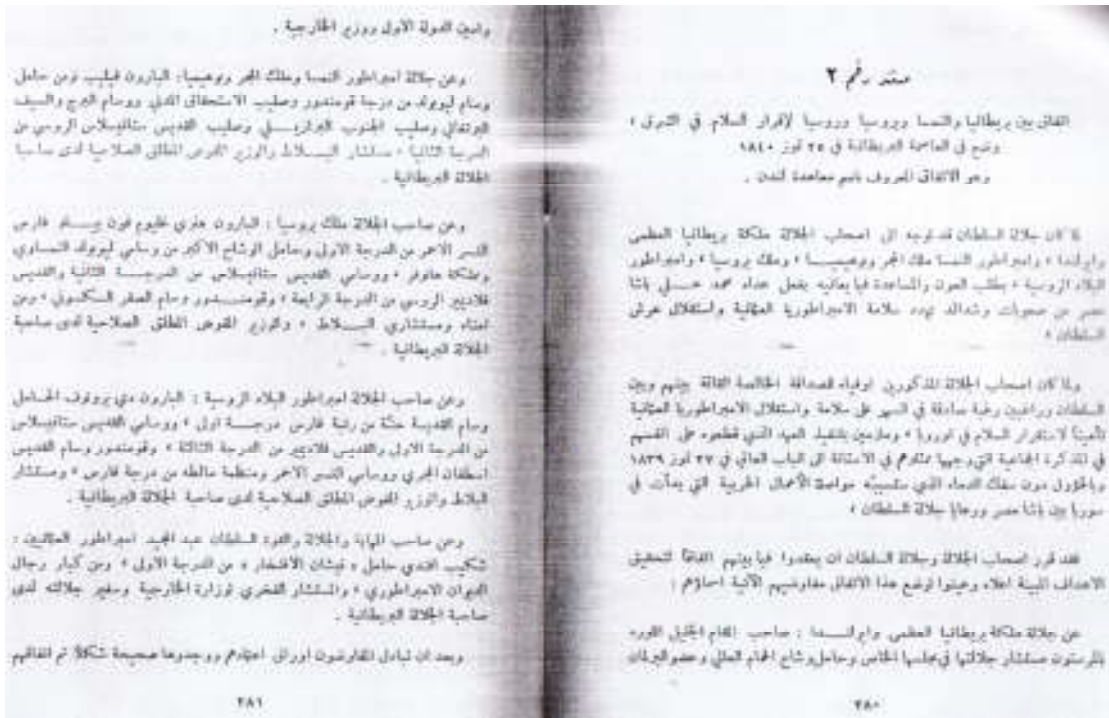 مستند رقم ٢
اتفاق بين بريطانيا والنمسا وبروسيا وروسيا لإقرار السلام في الشرق ،
وضع في العاصمة البريطانية في ١٥ تموز ١٨٤٠
وهو الاتفاق المعروف باسم معاهدة لندن .
لما كان جلالة السلطان قد توجه الى اصحاب الجلالة ملكة بريطانيا العظمى
وايرلندا ، وامبراطور النمسا ملك المجر وبوهيميا ، وملك بروسيا ، وامبراطور
البلاد الروسية ، بطلب العون والمساعدة فيما يعانيه بفعل عداء محمد علي باشا
مصر من صعوبات وشدائد تهدد سلامة الامبراطوريا العثمانية واستقلال عرش
السلطان ،
ولما كان اصحاب الجلالة المذكورين اوفياء للصداقة الخالصة القائمة بينهم وبين
السلطان وراغبين رغبة صادقة في السهر على سلامة واستقلال الامبراطوريا العثمانية
تأميناً لاستقرار السلام في اوروبا ، وملزمين بتنفيذ العهد الذي قطعوه على انفسهم
في المذكرة الجماعية التي وجهها ممثلوهم في الاستانة الى الباب العالي في ٢٧ تموز ١٨٣٩
وبالحؤول دون سفك الدماء الذي ستسببه مواصلة الأعمال الحربية التي بدأت في
سوريا بين باشا مصر ورعايا جلالة السلطان ،
فقد قرر اصحاب الجلالة وجلالة السلطان ان يعقدوا فيما بينهم اتفاقاً لتحقيق
الاهداف المبينة اعلاه وعينوا لوضع هذا الاتفاق مفاوضيهم الآتية اسماؤهم :
عن جلالة ملكة بريطانيا العظمى وايرلندا : صاحب المقام الجليل اللورد
بالمرستون مستشار جلالتها في مجلسها الخاص وحامل وشاح الحمام العالي وعضو البرلمان
٢٨٠
وامين الدولة الاول ووزير الخارجية .
وعن جلالة امبراطور النمسا وملك المجر وبوهيميا: البارون فيليب نومن حامل
وسام ليوبولد من درجة قومندور وصليب الاستحقاق المدني ووسام البرج والسيف
البرتغالي وصليب الجنوب البرازيلي وصليب القديس ستانيسلاس الروسي من
الدرجة الثانية ، مستشار البلاط والوزير المفوض المطلق الصلاحية لدى صاحبة
الجلالة البريطانية .
وعن صاحب الجلالة ملك بروسيا : البارون هنري غليوم فون بيلو فارس
النسر الاحمر من الدرجة الاولى وحامل الوشاح الاكبر من وسامي ليوبولد النمساوي
ومملكة هانوفر ، ووسامي القديس ستانيسلاس من الدرجة الثانية والقديس
فلاديمير الروسي من الدرجة الرابعة ، وقومندور وسام الصقر السكسوني ، ومن
امناء ومستشاري البلاط ، والوزير المفوض المطلق الصلاحية لدى صاحبة
الجلالة البريطانية .
وعن صاحب الجلالة امبراطور البلاد الروسية : البارون دي برونوف الحامل
وسام القديسة حنّة من رتبة فارس درجة اولى ، ووسامي القديس ستانيسلاس
من الدرجة الاولى والقديس فلاديمير من الدرجة الثالثة ، وقومندور وسام القديس
اسطفان المجري ووسامي النسر الاحمر ومنظمة مالطه من درجة فارس ، ومستشار
البلاط والوزير المفوض المطلق الصلاحية لدى صاحبة الجلالة البريطانية .
وعن صاحب المهابة والجلالة والقوة السلطان عبد المجيد امبراطور العثمانيين :
شكيب افندي حامل « نيشان الافتخار » من الدرجة الاولى ، ومن كبار رجال
الديوان الامبراطوري ، والمستشار الفخري لوزارة الخارجية وسفير جلالته لدى
صاحبة الجلالة البريطانية .
وبعد ان تبادل المفاوضون اوراق اعتمادهم ووجدوها صحيحة شكلاً تم اتفاقهم
٢٨١